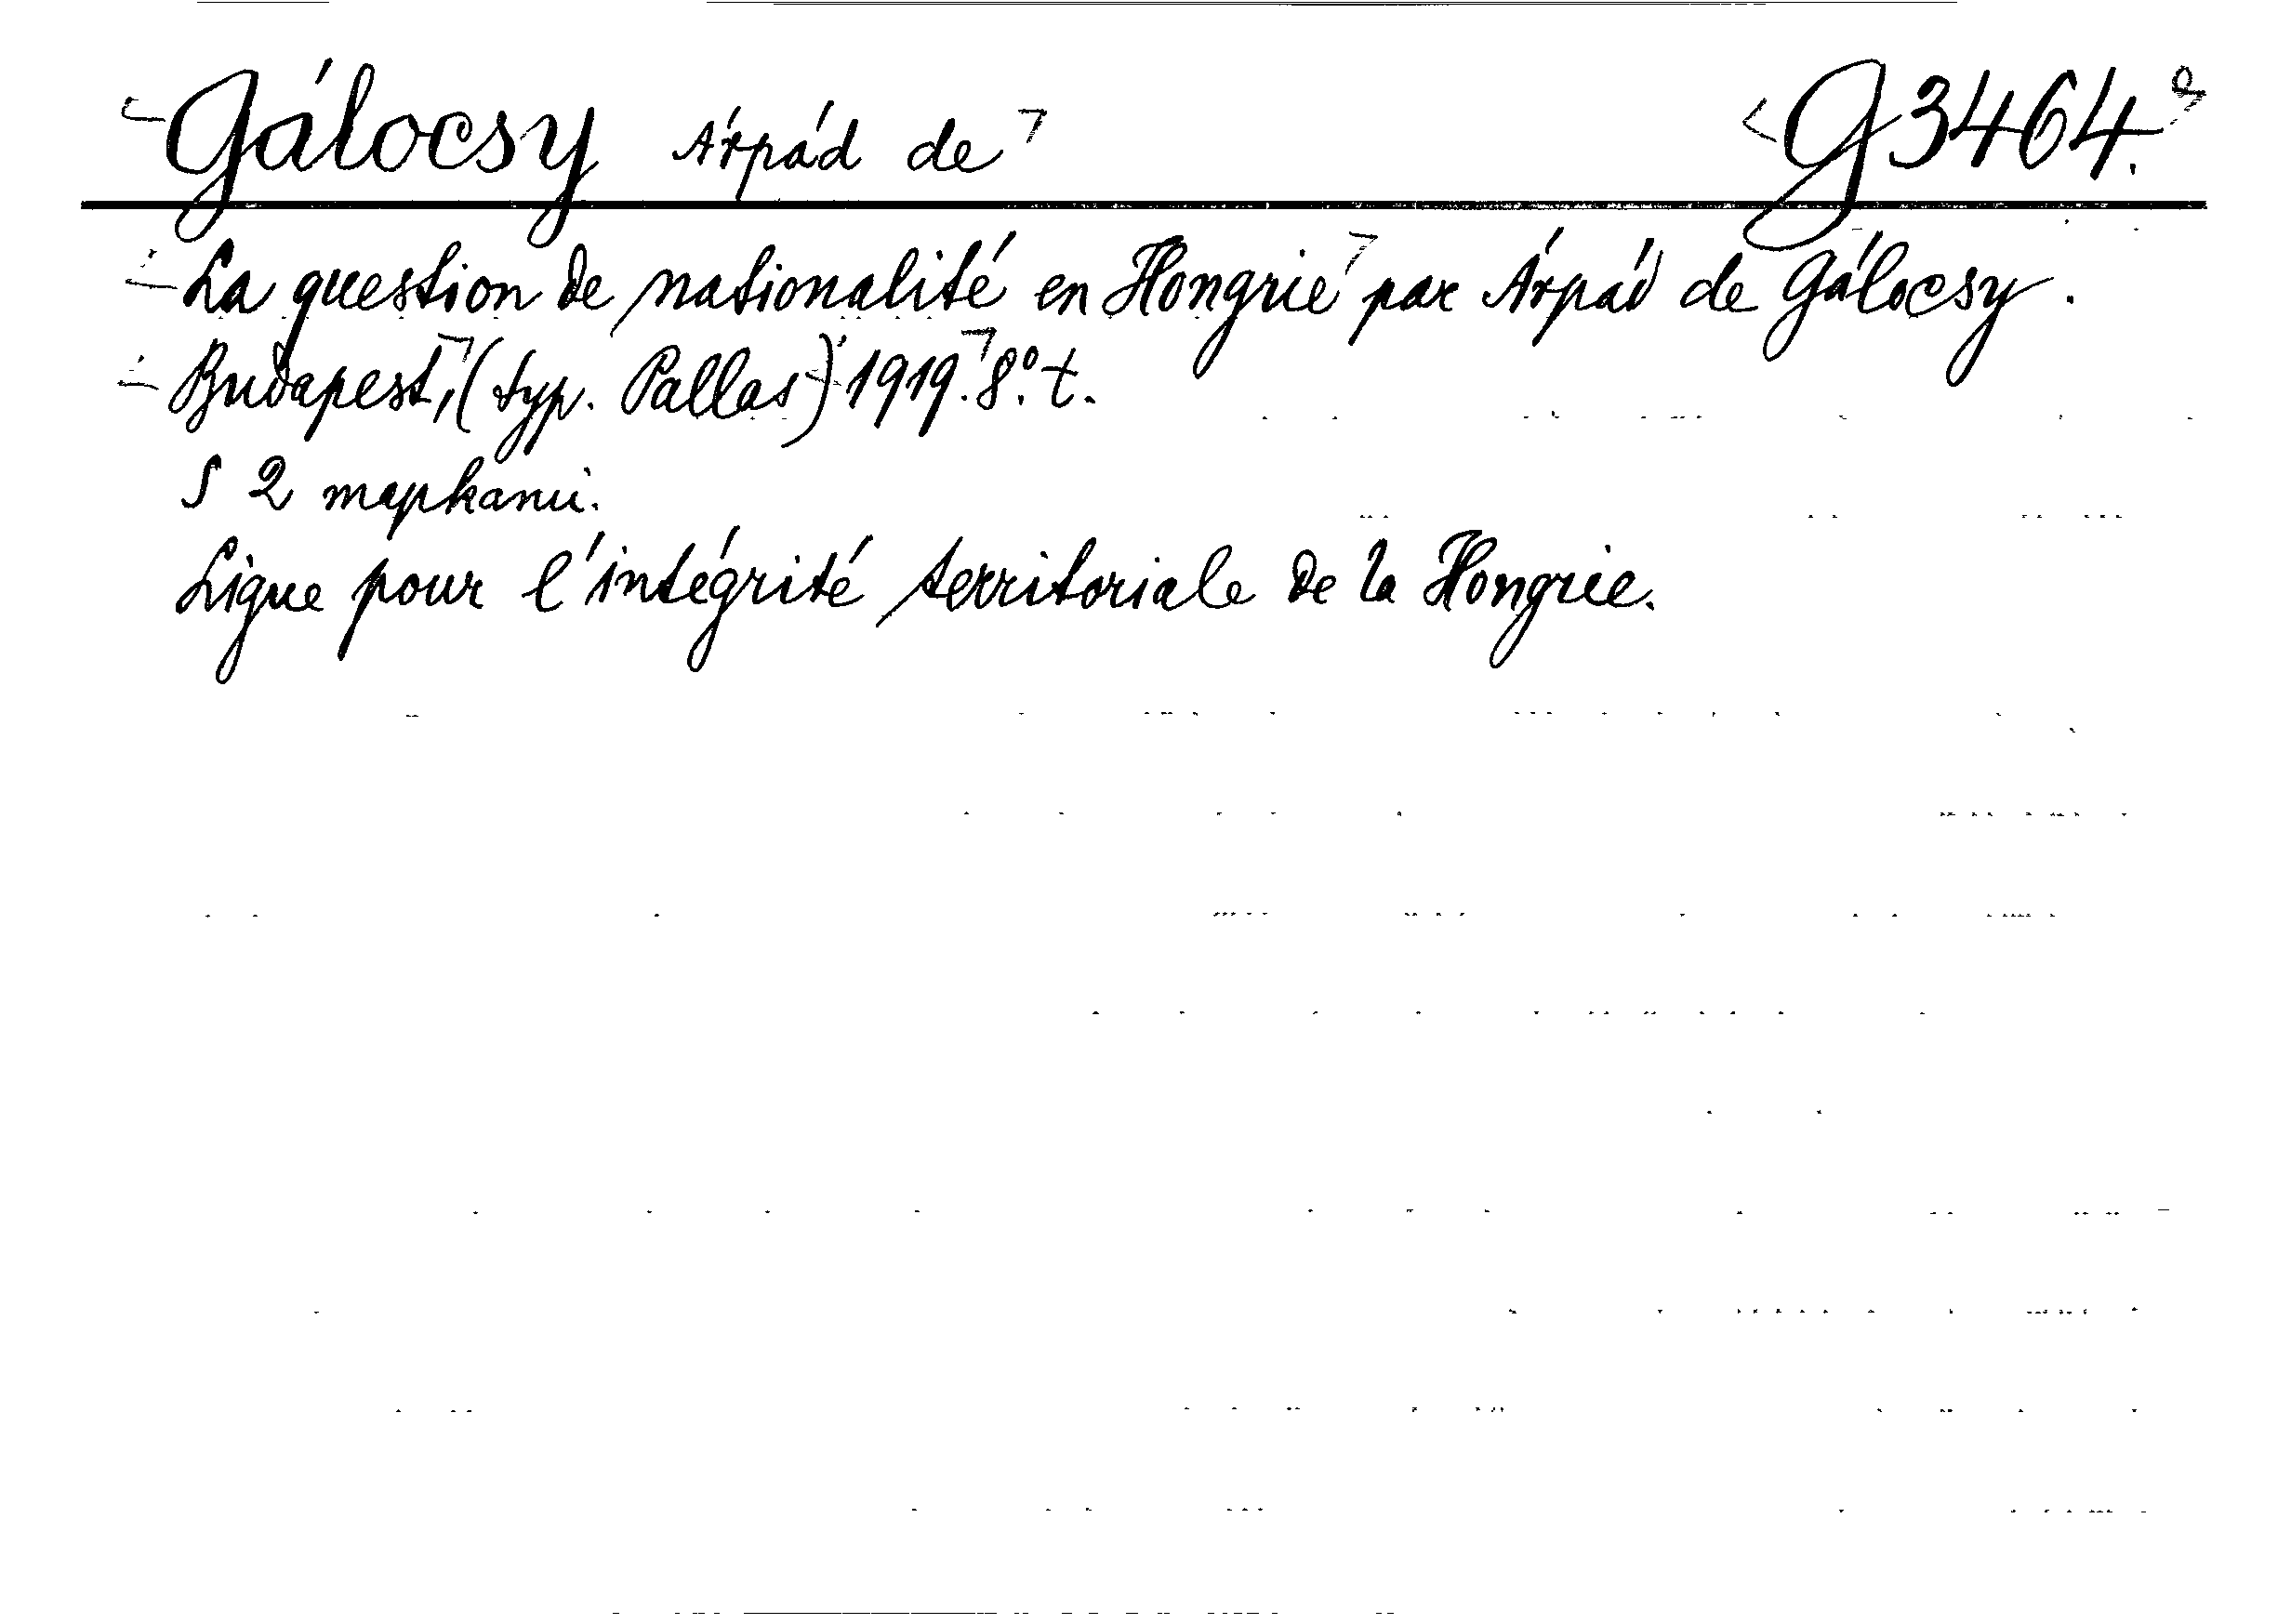 Gálocsy Árpád de G 3464.
La question de nationalité en Hongrie par Árpád de Gálocsy.
Budapest, (typ. Pallas) 1919. 8°. t.
S 2 mapkami.
Ligue pour l'intégrité territoriale de la Hongrie.